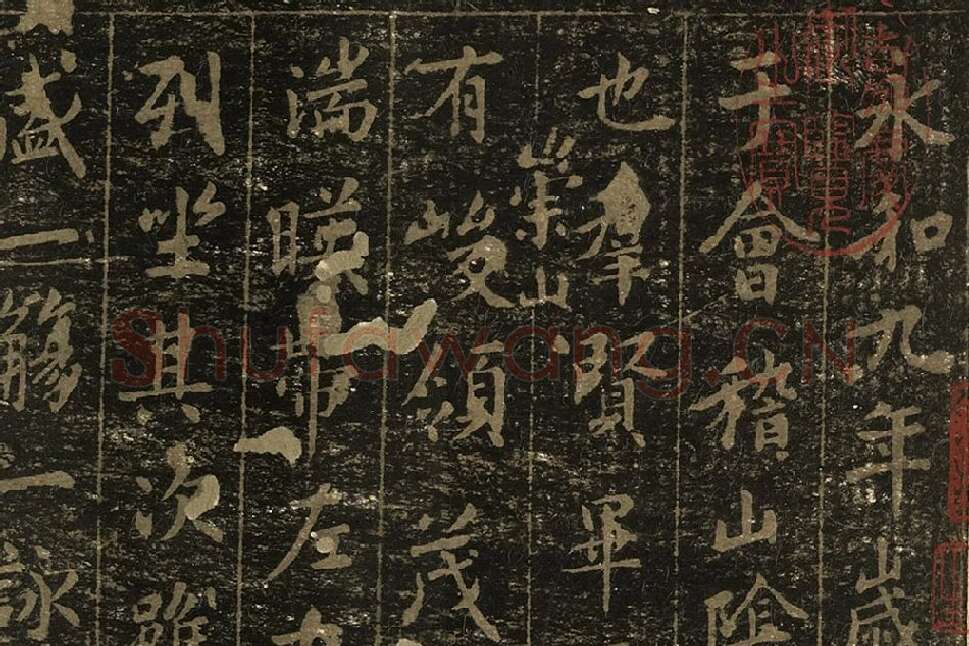 永和九年歲
于會稽山陰
也羣賢畢
有崇山峻領茂
湍暎帶左右
列坐其次雖
盛一觴一詠
Shufawang.CN